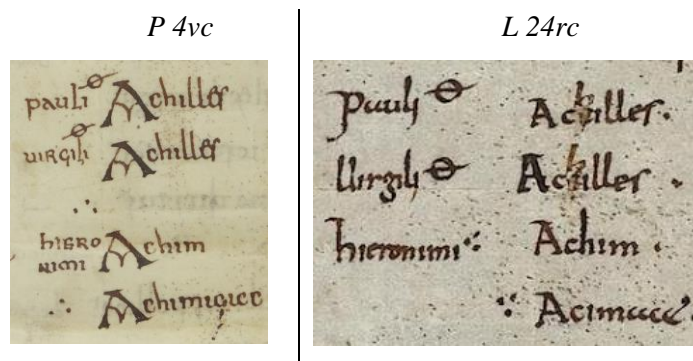 P 4vc
pauli Θ Achilles
uirgili Θ Achilles
∴
hiero
nimi Achim
∴
L 24rc
Pauli Θ Achilles.
Uirgili Θ Achilles .
hieronimi ∵ Achim .
∵